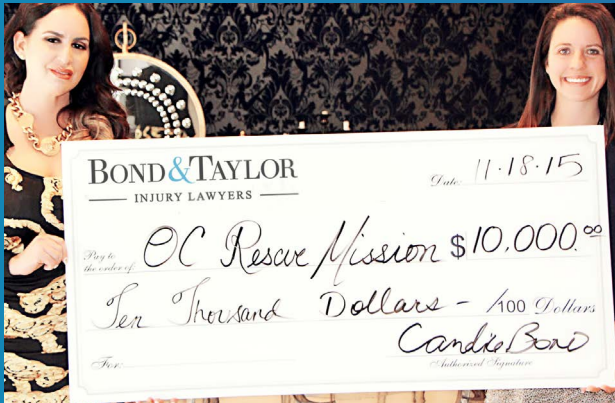 BOND&TAYLOR
INJURY LAWYERS
Date 11·18·15
Pay to
the order of OC Rescue Mission $10,000.00
Ten Thousand Dollars - /100 Dollars
For: Candice Bond
Authorized Signature